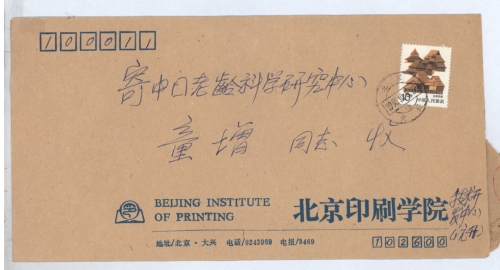 100011
寄中日老龄科学研究中心
童增 同志 收
中国人民邮政
BEIJING INSTITUTE
OF PRINTING
北京印刷学院
地址/北京·大兴 电话/0243969 电报/3469
102600